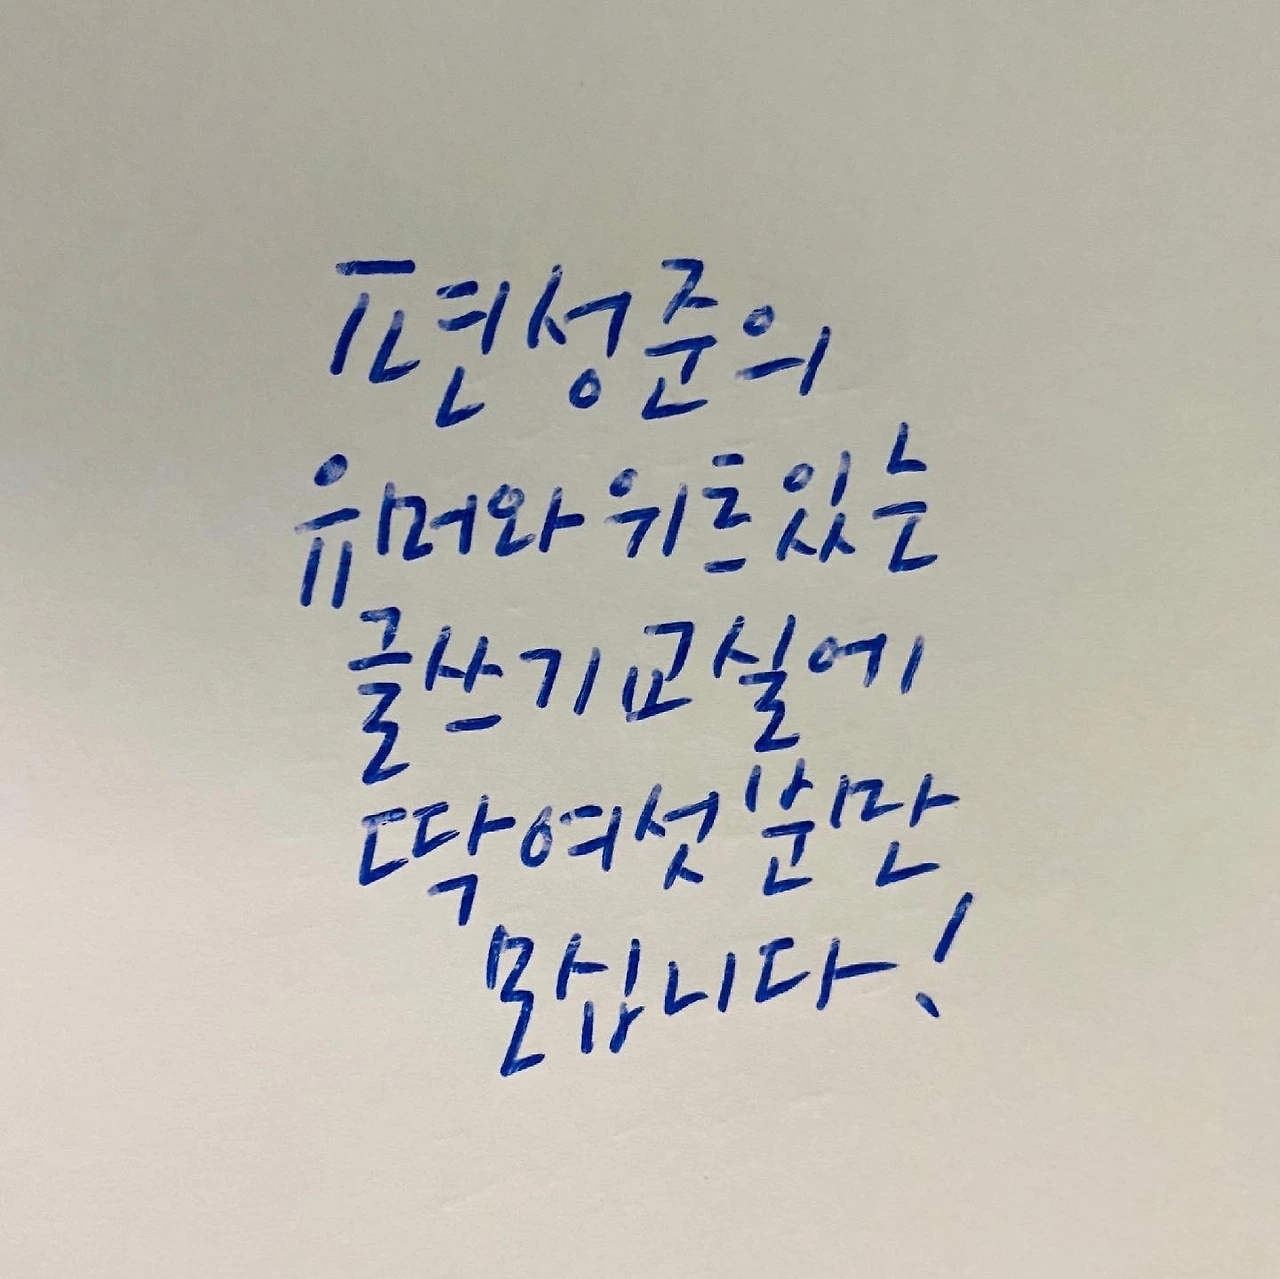 편성준의
유머와 위트 있는
글쓰기 교실에
딱 여섯 분만
모십니다!